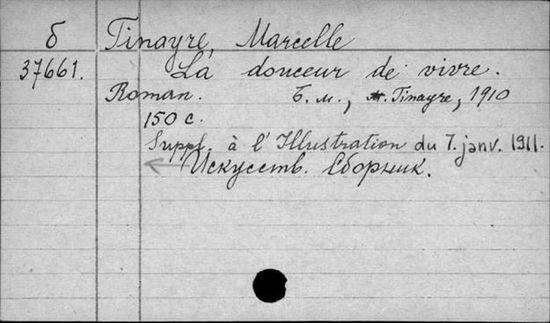 б Tinayre, Marcelle
37661. La douceur de vivre.
Roman. Б. м., Tinayre, 1910
150 с.
Suppl. à l'Illustration du 7. janv. 1911.
Искусств. Сборник.